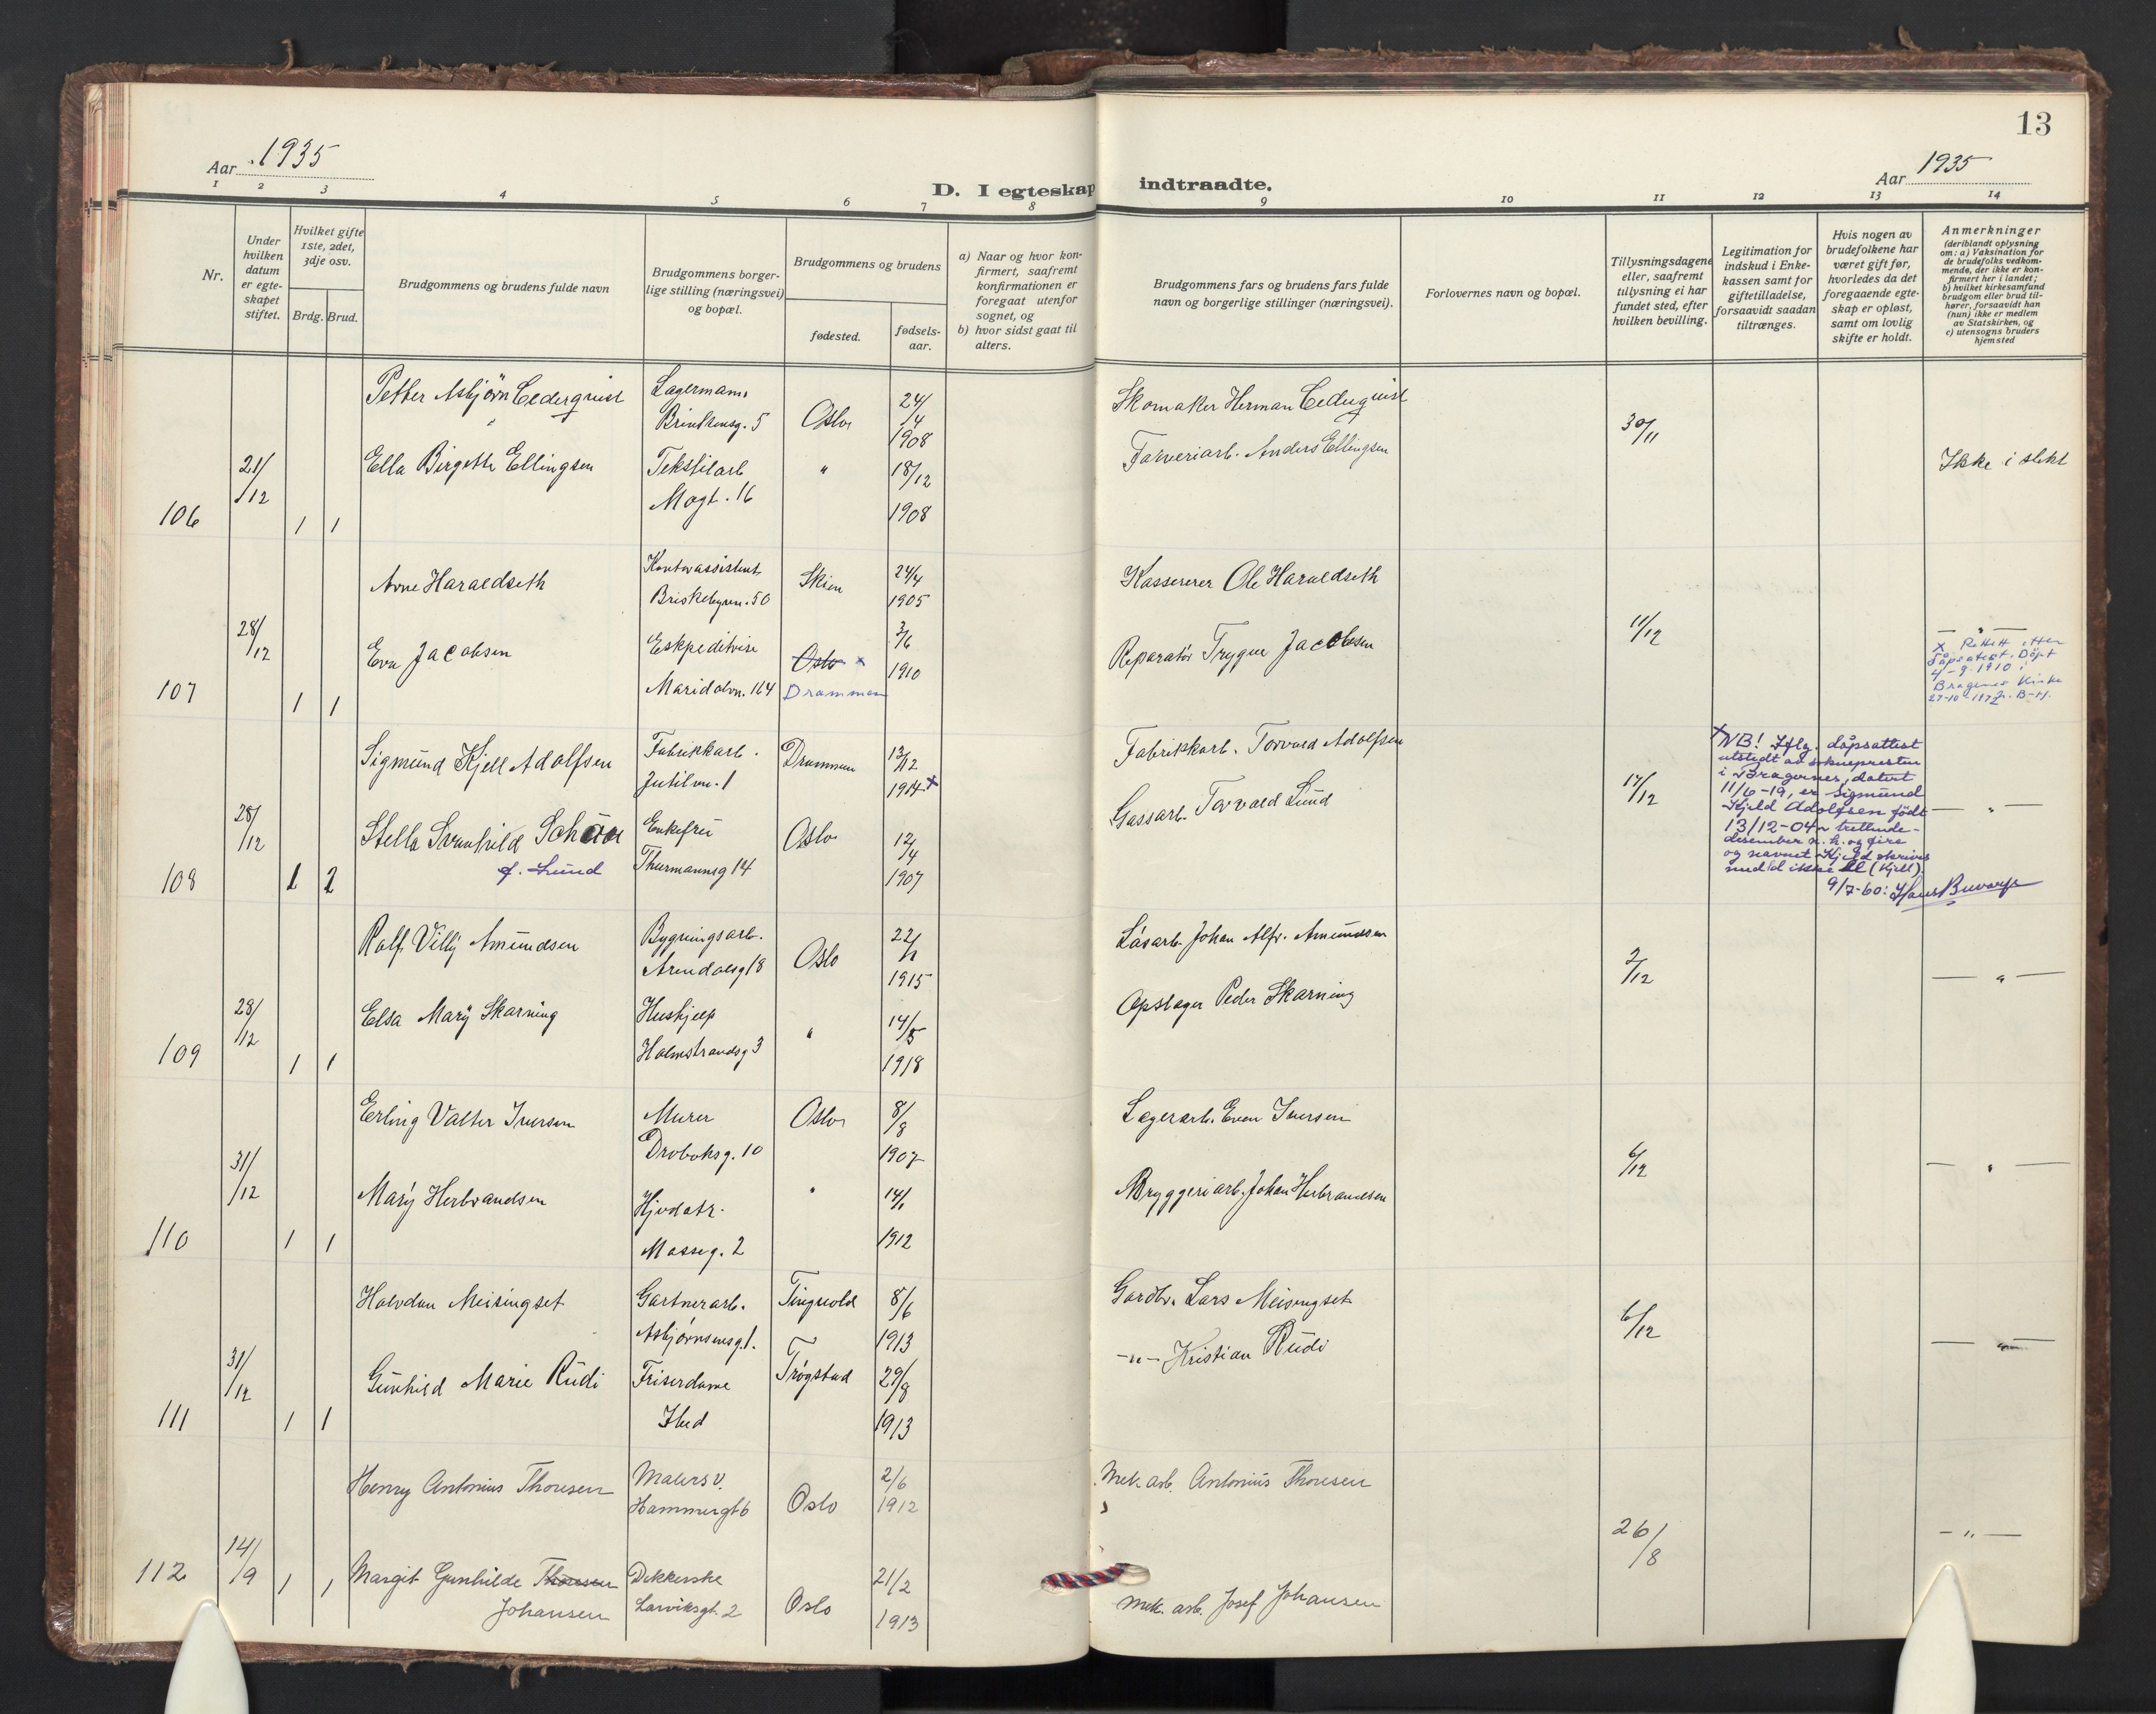 13
Aar 1935
D. I egteskap indtraadte.
Aar 1935
1 2 3 4 5 6 7 8 9 10 11 12 13 14
Nr.
Under hvilken datum er egteskapet stiftet.
Hvilket gifte 1ste, 2det, 3dje osv.
Brdg. Brud.
Brudgommens og brudens fulde navn
Brudgommens borgerlige stilling (næringsvei) og bopæl.
Brudgommens og brudens
fødested.
fødselsaar.
a) Naar og hvor konfirmert, saafremt konfirmationen er foregaat utenfor sognet, og
b) hvor sidst gaat til alters.
Brudgommens fars og brudens fars fulde navn og borgerlige stillinger (næringsvei).
Forlovernes navn og bopæl.
Tillysningsdagene eller, saafremt tillysning ei har fundet sted, efter hvilken bevilling.
Legitimation for indskud i Enkekassen samt for giftetilladelse, forsaavidt saadan tiltrænges.
Hvis nogen av brudefolkene har været gift før, hvorledes da det foregaaende egteskap er opløst, samt om lovlig skifte er holdt.
Anmerkninger
(deriblandt oplysning om: a) Vaksination for de brudefolks vedkommende, der ikke er konfirmert her i landet; b) hvilket kirkesamfund brudgom eller brud tilhører, forsaavidt han (hun) ikke er medlem av Statskirken, og c) utensogns bruders hjemsted
Petter Asbjørn Cederquist Lagermann Oslo 24/4 Skomaker Herman Cederquist 30/11
5 1908
21/12 Ella Birgette Ellingsen Tekstilarb " 18/12 Garveriarb. Anders Ellingsen Ikke i slekt
106 1 1 Mogt. 16 1908
Arne Haraldseth Kontorassistent Skien 24/4 Kasserer Ole Haraldseth
Briskebyvn. 50 1905
28/12 Eva Jacobsen Ekspeditrise Oslo x 3/6 Reparatør Trygve Jacobsen 11/12 — " —
107 1 1 Maridalvn. 164 Drammen 1910
x Rettet etter
dåpsattest. Døpt
4-9-1910 i
Bragernes Kirke
27-10-1972. B-H.
Sigmund Kjell Adolfsen Fabrikkarb. Drammen 13/12 Fabrikkarb. Torvald Adolfsen
Jutulvn. 1 1914 x
28/12 Stella Svanhild Enkefru Oslo 12/4 Gassarb. Torvald Lund 17/12 — " —
108 1 2 f. Lund Thurmannsg 14 1907
x NB! Iflg. dåpsattest
utstedt av soknepresten
i Bragernes, datert
11/6-19, er Sigmund
Kjeld Adolfsen født
13/12-04 trettende-
desember n. h. og fire
og navnet Kjeld skrives
med ld ikke ll (Kjell).
9/7-60: Hans
Rolf Villy Amundsen Bygningsarb. Oslo 22/1 Låsarb. Johan Alfr. Amundsen
Arendalsg 18 1915
28/12 Elsa Mary Skarning Hushjelp " 14/5 Opslager Peder Skarning 2/12 — " —
109 1 1 Holmestrandsg 3 1918
Erling Valter Iversen Murer Oslo 8/8 Lagerarb. Even Iversen
Drøbaksg. 10 1907
31/12 Mary Herbrandsen Hj.v.datr. " 14/1 Bryggeriarb. Johan Herbrandsen 6/12 — " —
110 1 1 Mosseg. 2 1912
Halvdan Meisingset Gartnerarb. Tingvold 8/6 Gardbr. Lars Meisingset
Asbjørnsensg 1. 1913
31/12 Gunhild Marie Rudi Friserdame Trøgstad 29/8 -"- Kristian Rudi 6/12 — " —
111 1 1 Ibid 1913
Henry Antonius Thoresen Malersv. Oslo 2/6 Mek. arb. Antonius Thoresen
Hammergt 6 1912
14/9 Margit Gunhilde Thoresen Oslo 21/2 26/8 — " —
112 1 1 Johansen Larviksgt. 2 1913 Mek. arb. Josef Johansen